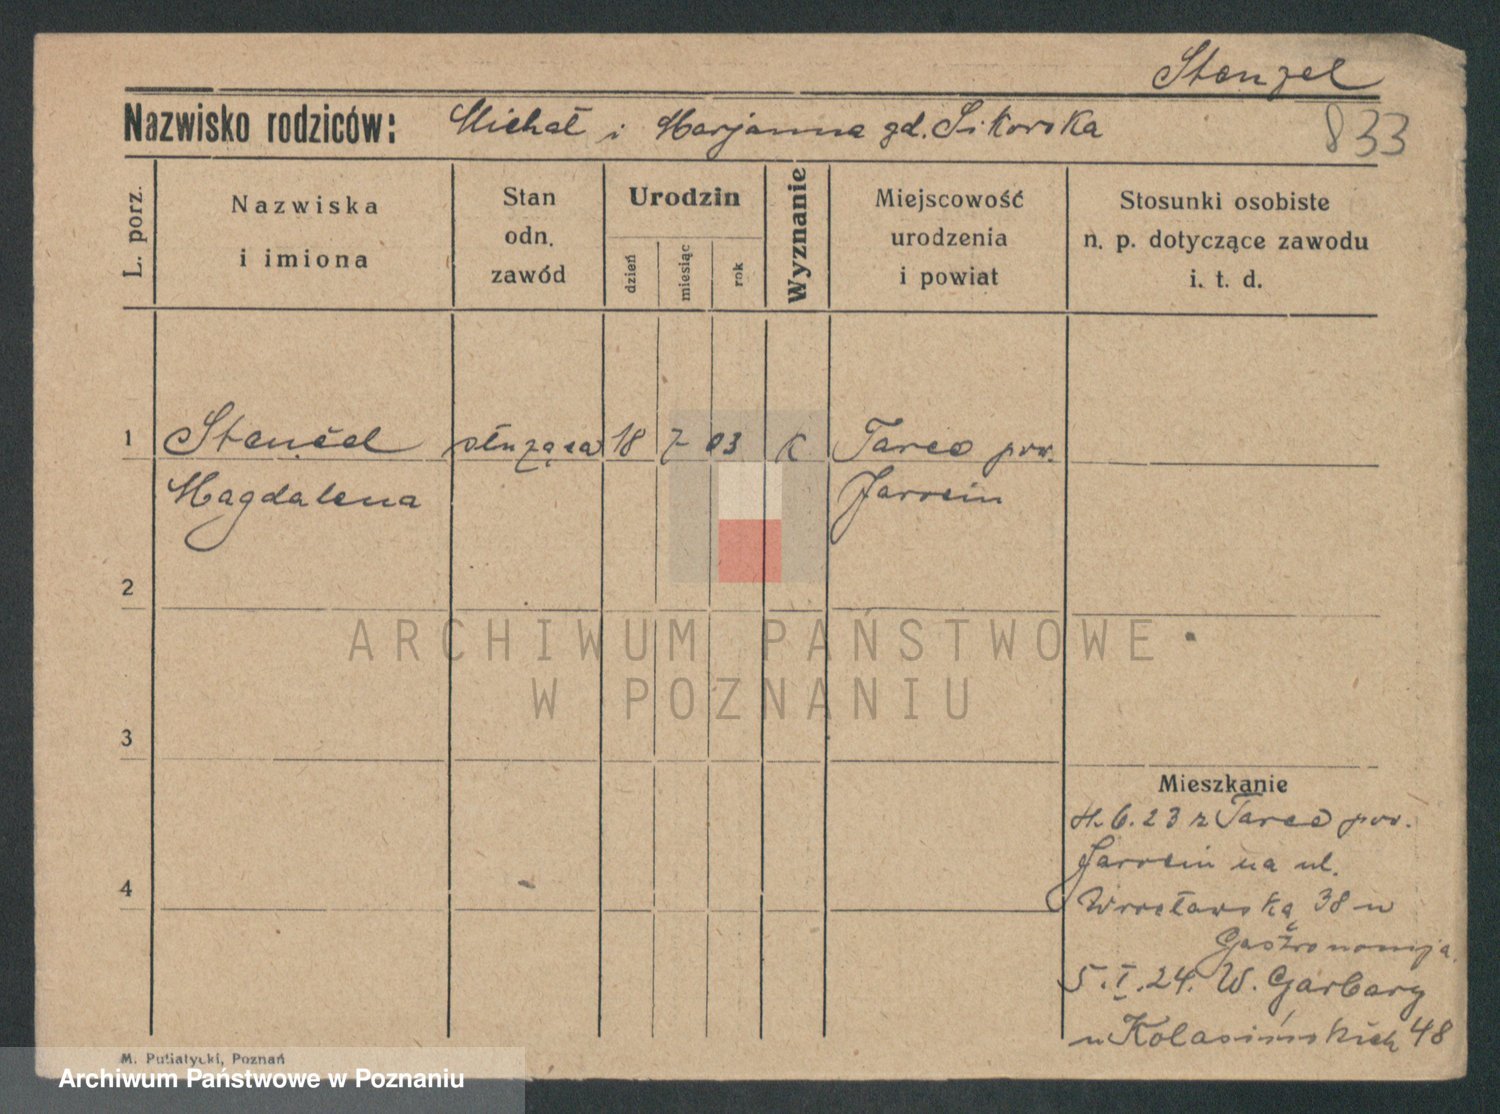 Stenzel
Nazwisko rodziców: Michał i Marjanna gd. Sikorska
833
L. porz.
Nazwiska
i imiona
Stan
odn.
zawód
Urodzin
dzień
miesiąc
rok
Wyznanie
Miejscowość
urodzenia
i powiat
Stosunki osobiste
n. p. dotyczące zawodu
i. t. d.
1 służąca 18 7 03 K Tarce pow.
Magdalena Jarocin
2
ARCHIWUM PAŃSTWOWE
W POZNANIU
3
Mieszkanie
6.23 z Tarce pow.
Jarocin na ul.
4
Wrocławską 38 u
Gastronomija.
5.I.24. W. Garbary
u Kolasińskich 48
M. Putiatycki, Poznań
Archiwum Państwowe w Poznaniu